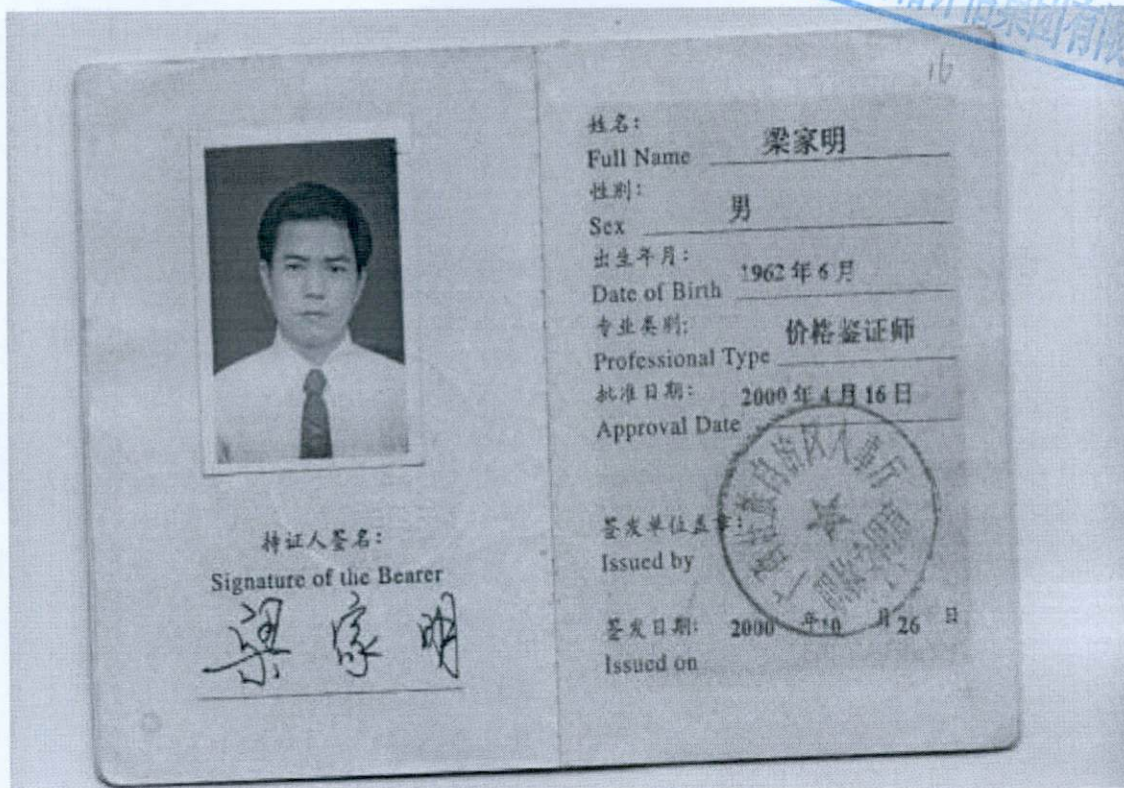 评估集团有限
16
持证人签名:
Signature of the Bearer
梁家明
姓名:
Full Name 梁家明
性别:
Sex 男
出生年月:
Date of Birth 1962年6月
专业类别:
Professional Type 价格鉴证师
批准日期:
Approval Date 2000年4月16日
签发单位盖章:
Issued by
广西壮族自治区人事厅
签发日期: 2000 年 10 月 26 日
Issued on